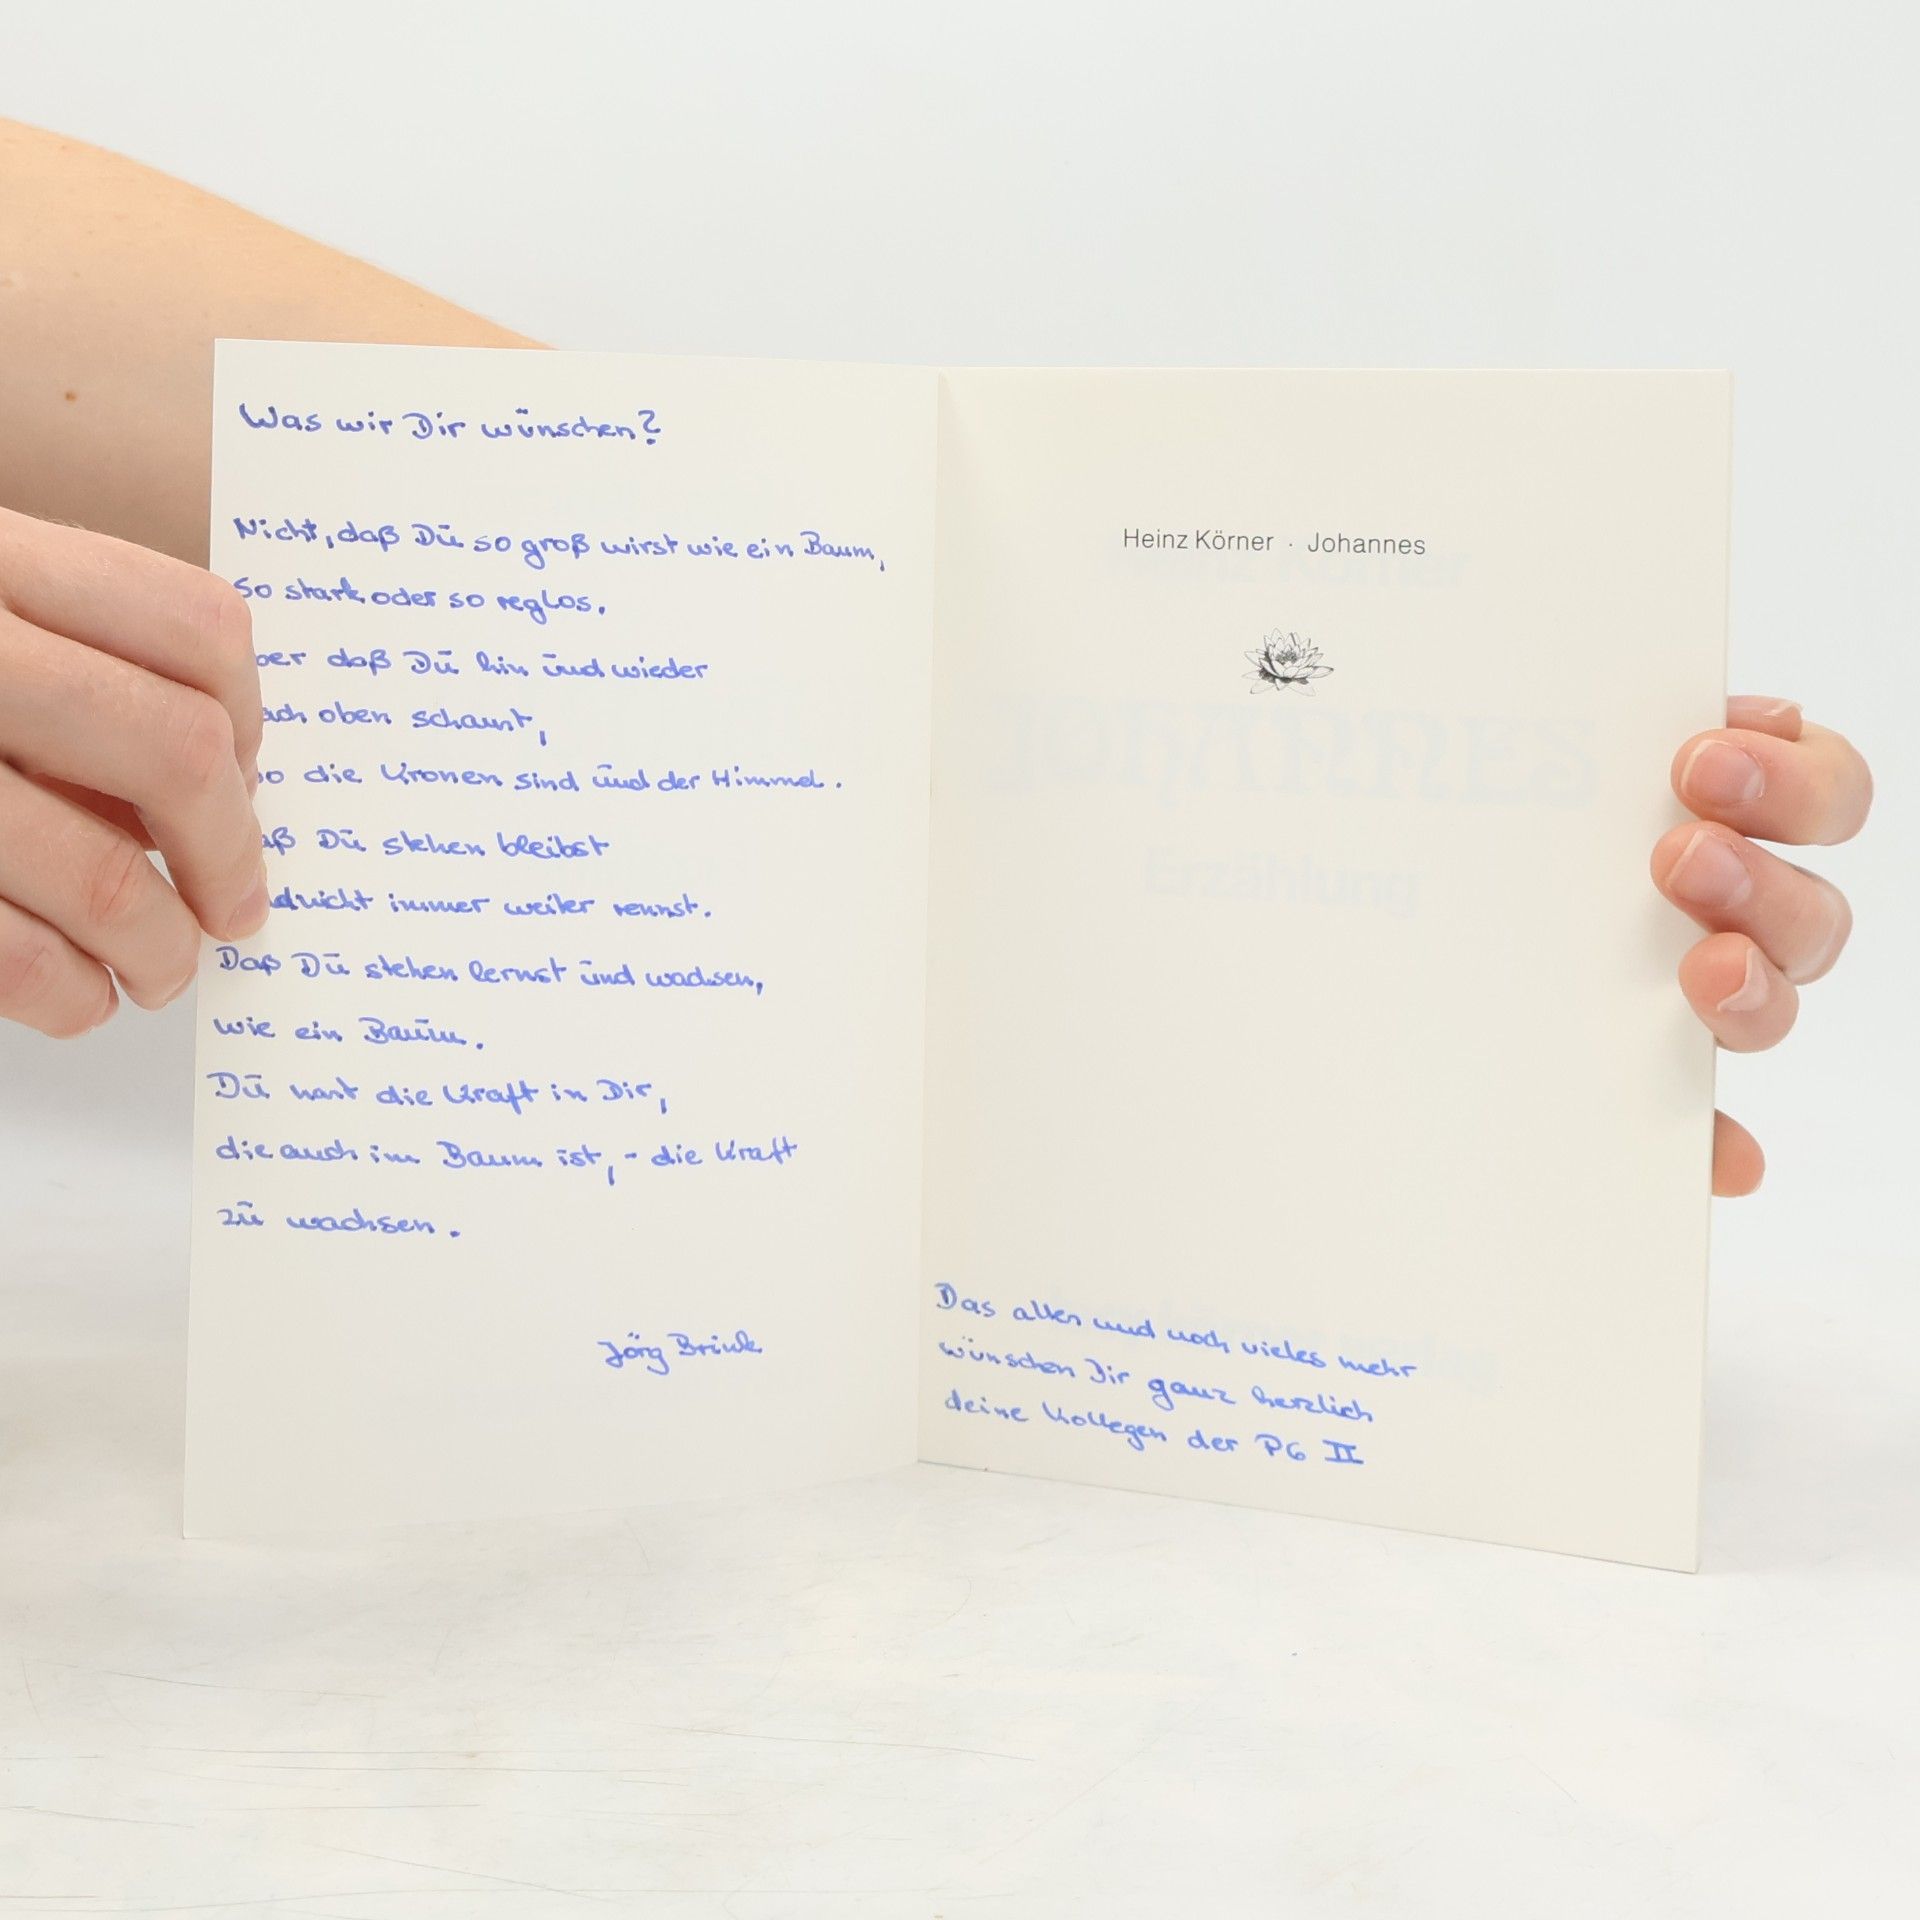 Was wir Dir wünschen?
Nicht, daß Du so groß wirst wie ein Baum,
so stark oder so reglos.
ber daß Du hin und wieder
ach oben schaust,
o die Kronen sind und der Himmel.
aß Du stehen bleibst
d nicht immer weiter rennst.
Daß Du stehen lernst und wachsen,
wie ein Baum.
Du hast die Kraft in Dir,
die auch im Baum ist, - die Kraft
zu wachsen.
Jörg Brink
Heinz Körner · Johannes
Erzählung
Das alles und noch vieles mehr
wünschen Dir ganz herzlich
deine Kollegen der PG II